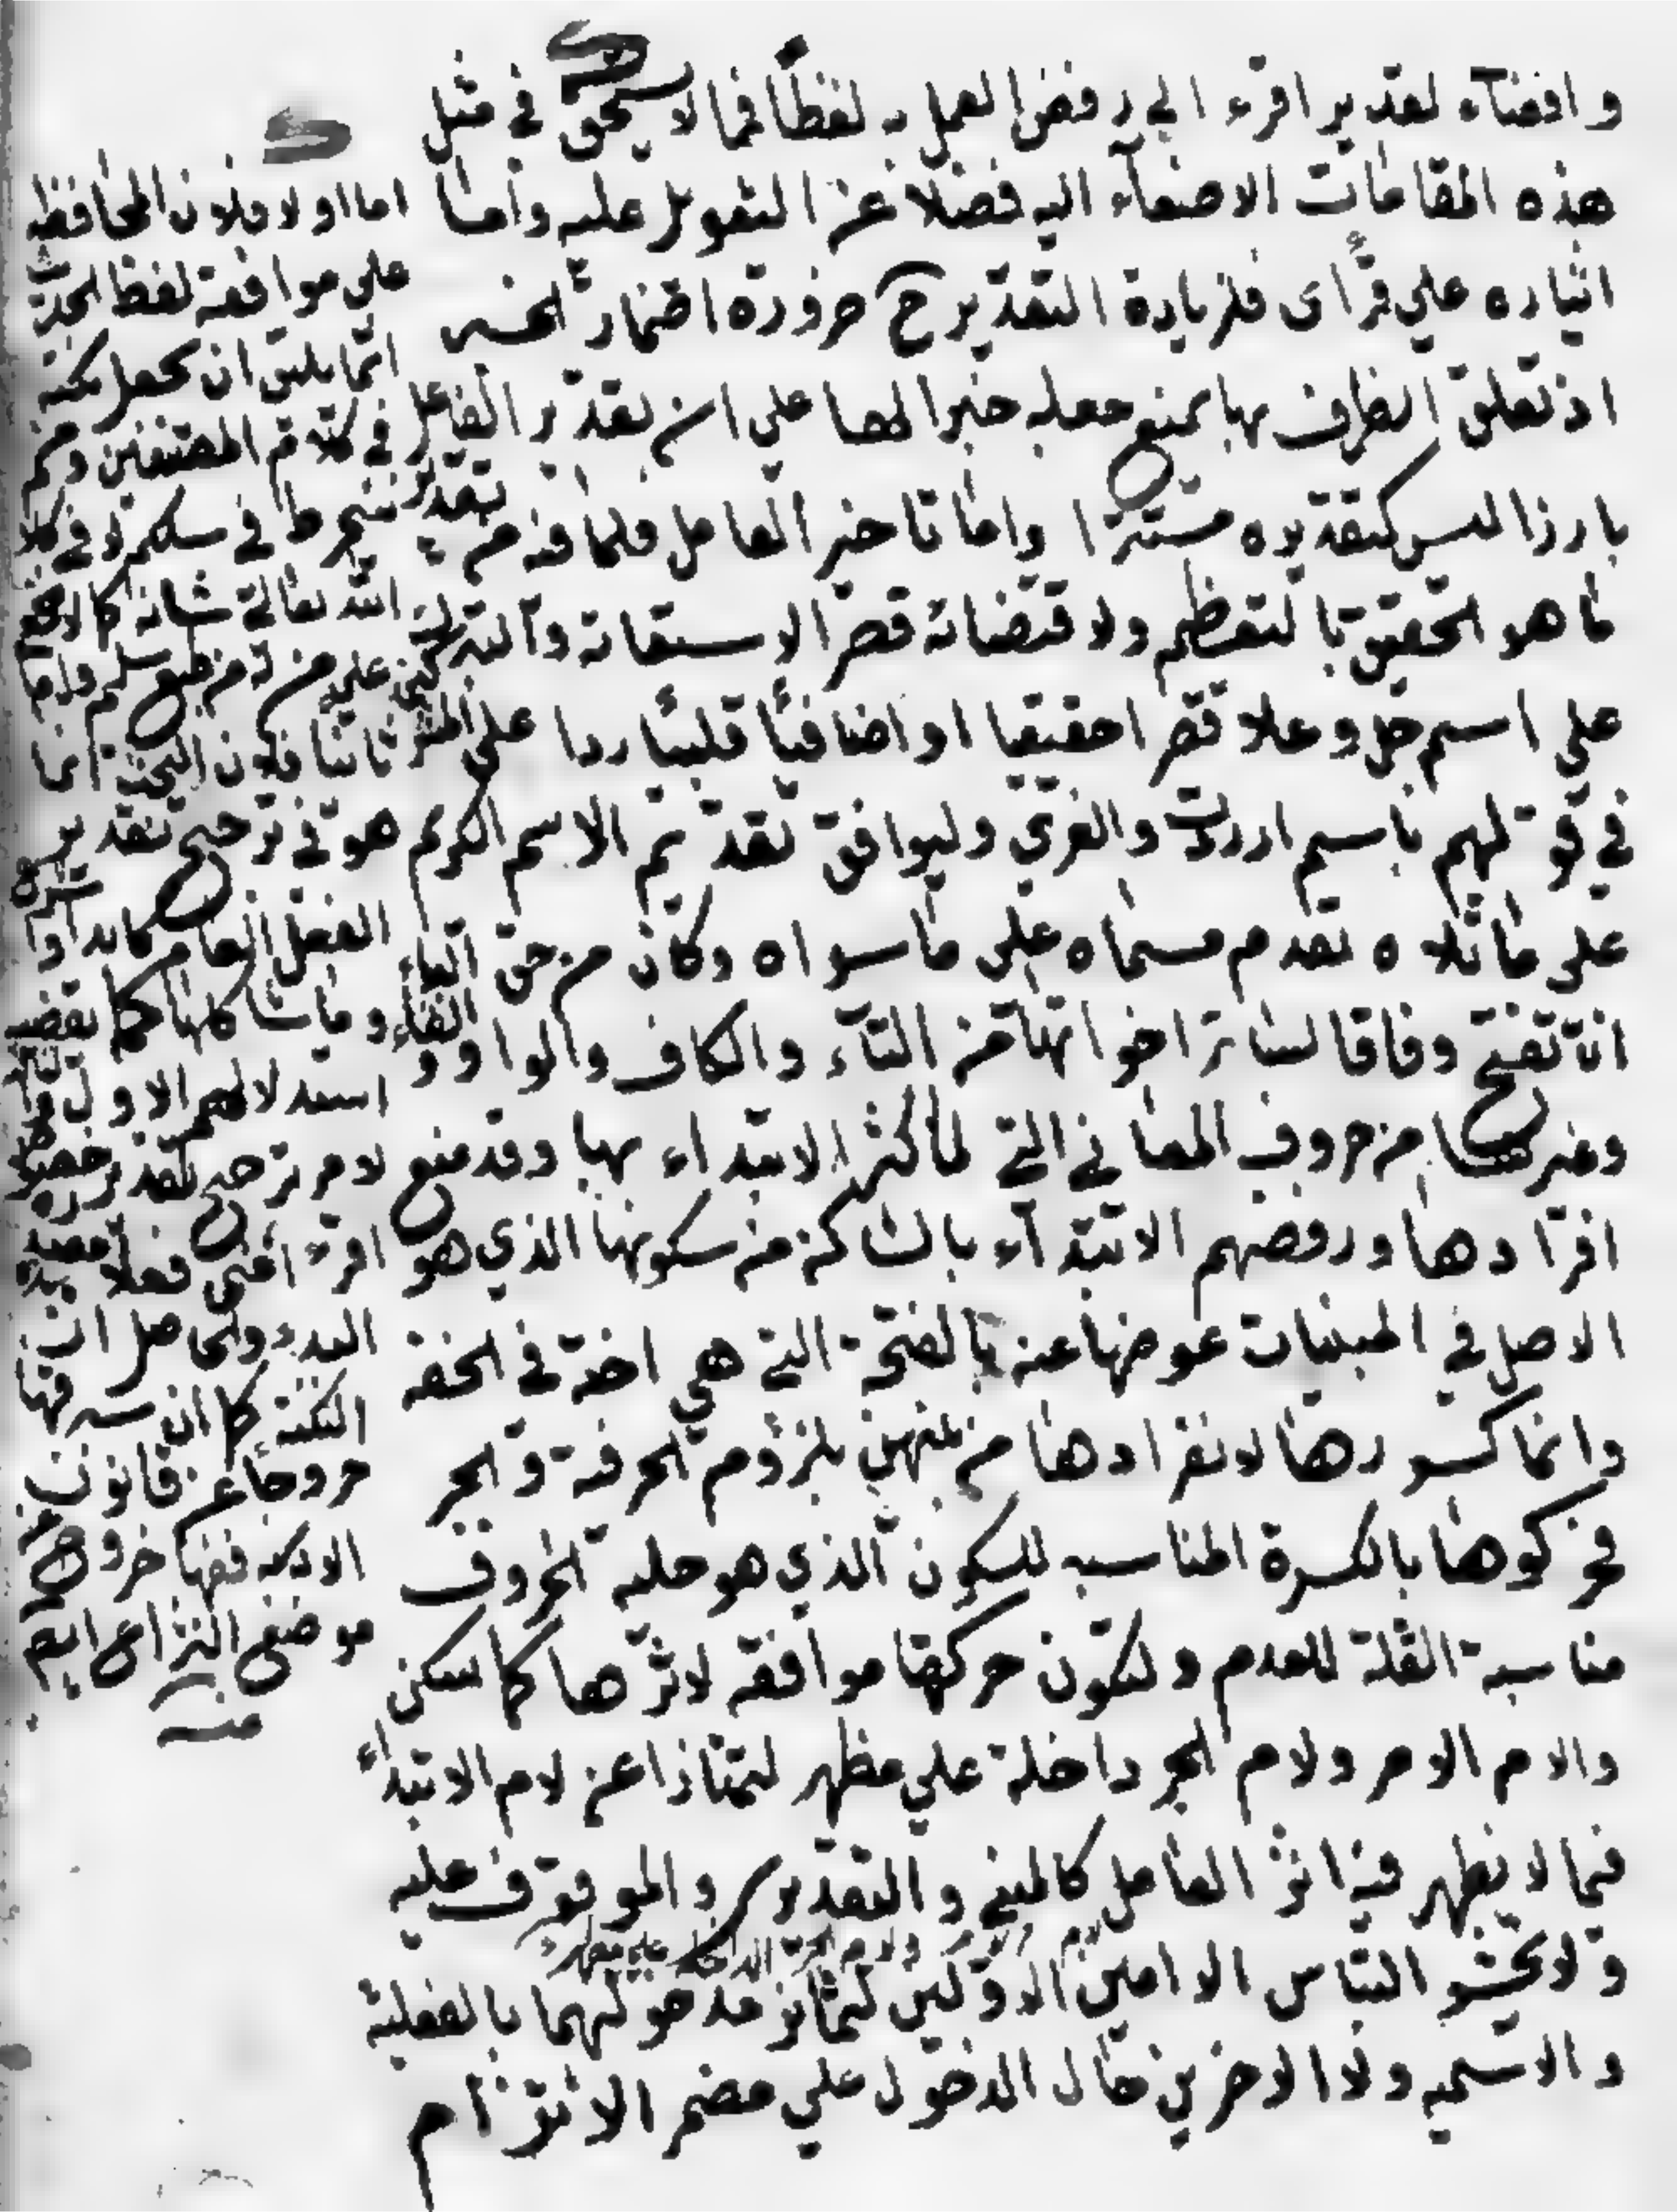 وافضاء تقدير اقرء الى رفض العمل به لفظا فمما لا يستحق في مثل
هذه المقامات الاصغاء اليه فضلا عن التعويل عليه واما
ايثاره على قرآى فلزيادة التقدير ح ضرورة اضمار الخبر
اذ تعلق الظرف بها يمنع جعله خبرا لها على ان تقدير الفاعل
بارزا ليس كتقديره مستترا واما تاخير العامل فلما فيه من تقديم
ما هو الحقيق بالتعظيم ولاقتضائه قصر الاستعانة والتبرك
على اسمه جل وعلا قصرا حقيقيا او اضافيا قلبيا ردا على المشركين
في قولهم باسم اللات والعزى وليوافق تقديم الاسم الكريم
على ما تلاه تقدم مسماه على ما سواه وكان من حق الباء
ان تفتح وفاقا لسائر اخواتها من التآء والكاف والواو والفاء
وغيرها من حروف المعاني التي لما كثر الابتداء بها وقد منع
افرادها ورفضهم الابتدآء بالساكن من سكونها الذي هو
الاصل في المبنيات عوضها عنه بالفتحة التي هي اخته في الخفه
وانما كسروها لانفرادها من بينهن بلزوم الحرفية والجر
فحركوها بالكسرة المناسبه للسكون الذي هو حليه الحروف
مناسبة القلة للعدم ولتكون حركتها موافقه لاثرها كما سكن
والام الامر ولام الجر داخلة على مظهر لتمتازا عن لام الابتداء
فيما لا يظهر فيه اثر العامل كالمبني والتقديري والموقوف عليه
ولام الجر الداخلة على مظهر
ولا يخشو التباس الامين الاولين لتمايز مدخوليهما بالفعليه
والاسميه ولا الاخرين حال الدخول على مضمر الا نتزام
اما اولا فلان المحافظه
على موافقة لفظ الحديث
انما يليق ان يجعل نكتة
في كلام المصنفين ومن
ينخرط في سلكهم لا في كلام
الله تعالى شانه كما لا يخفى
على من له من طبع سليم واما
ثانيا فلان البحث انما
هو في ترجيح تقدير
الفعل العام كابدا او اشرع
وما شاكلها كما يقضيه
استدلالهم الاول
لا من ترجيح تقدير خصوص
اقرء اعني فعلا مصدره
البدء والحاصل ان
النكتة كما ان فيها
خروجا عن قانون
الادب ففيها خروج عن
موضع النزاع ايضا
منه